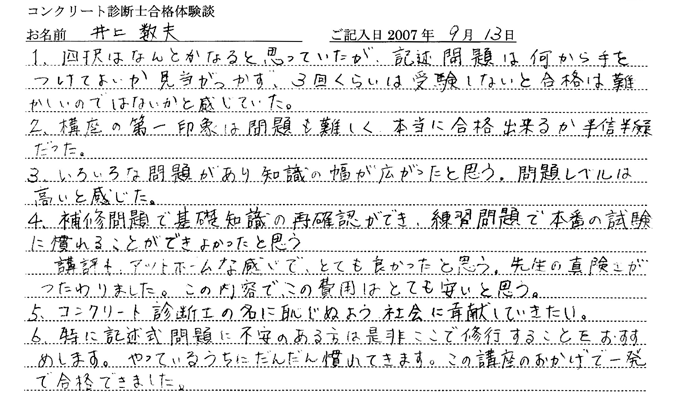 コンクリート診断士合格体験談
お名前 井上 数夫 ご記入日2007年 9月 13日
1、四択はなんとかなると思っていたが、記述問題は何から手を
つけてよいか見当がつかず、3回くらいは受験しないと合格は難
かしいのではないかと感じていた。
2、講座の第一印象は問題も難しく 本当に合格出来るか半信半疑
だった。
3、いろいろな問題があり知識の幅が広がったと思う。問題レベルは
高いと感じた。
4、補修問題で基礎知識の再確認ができ、練習問題で本番の試験
に慣れることができよかったと思う
講評も、アットホームな感じで、とても良かったと思う。先生の真険さが
つたわりました。この内容でこの費用はとても安いと思う。
5、コンクリート診断士の名に恥じぬよう社会に貢献していきたい。
6、特に記述式問題に不安のある方は是非ここで修行することをおすす
めします。やっているうちにだんだん慣れてきます。この講座のおかげで一発
で合格できました。